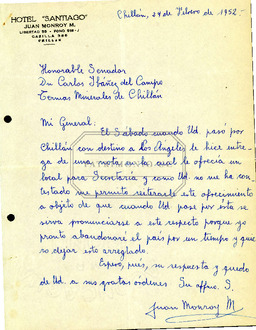 HOTEL "SANTIAGO"
JUAN MONROY M.
LIBERTAD 85 - FONO 238-J
CASILLA 368
CHILLAN
Chillán, 24 de Febrero de 1952.-
Honorable Senador
Dn Carlos Ibáñez del Campo
Termas Minerales de Chillán
Mi General:
El Sábado cuando Ud. pasó por
Chillán con destino a los Angeles le hice entre
ga de una nota en la cual le ofrecía un
local para Secretaría y como Ud. no me ha con
testado me permito reiterarle este ofrecimiento
a objeto de que cuando Ud. pase por ésta se
sirva pronunciarse a este respecto porque yo
pronto abandonare el país por un tiempo y que
ro dejar esto arreglado.
Espero, pues, su respuesta y quedo
de Ud. a sus gratas ordenes. Su affmo. S.
Juan Monroy M